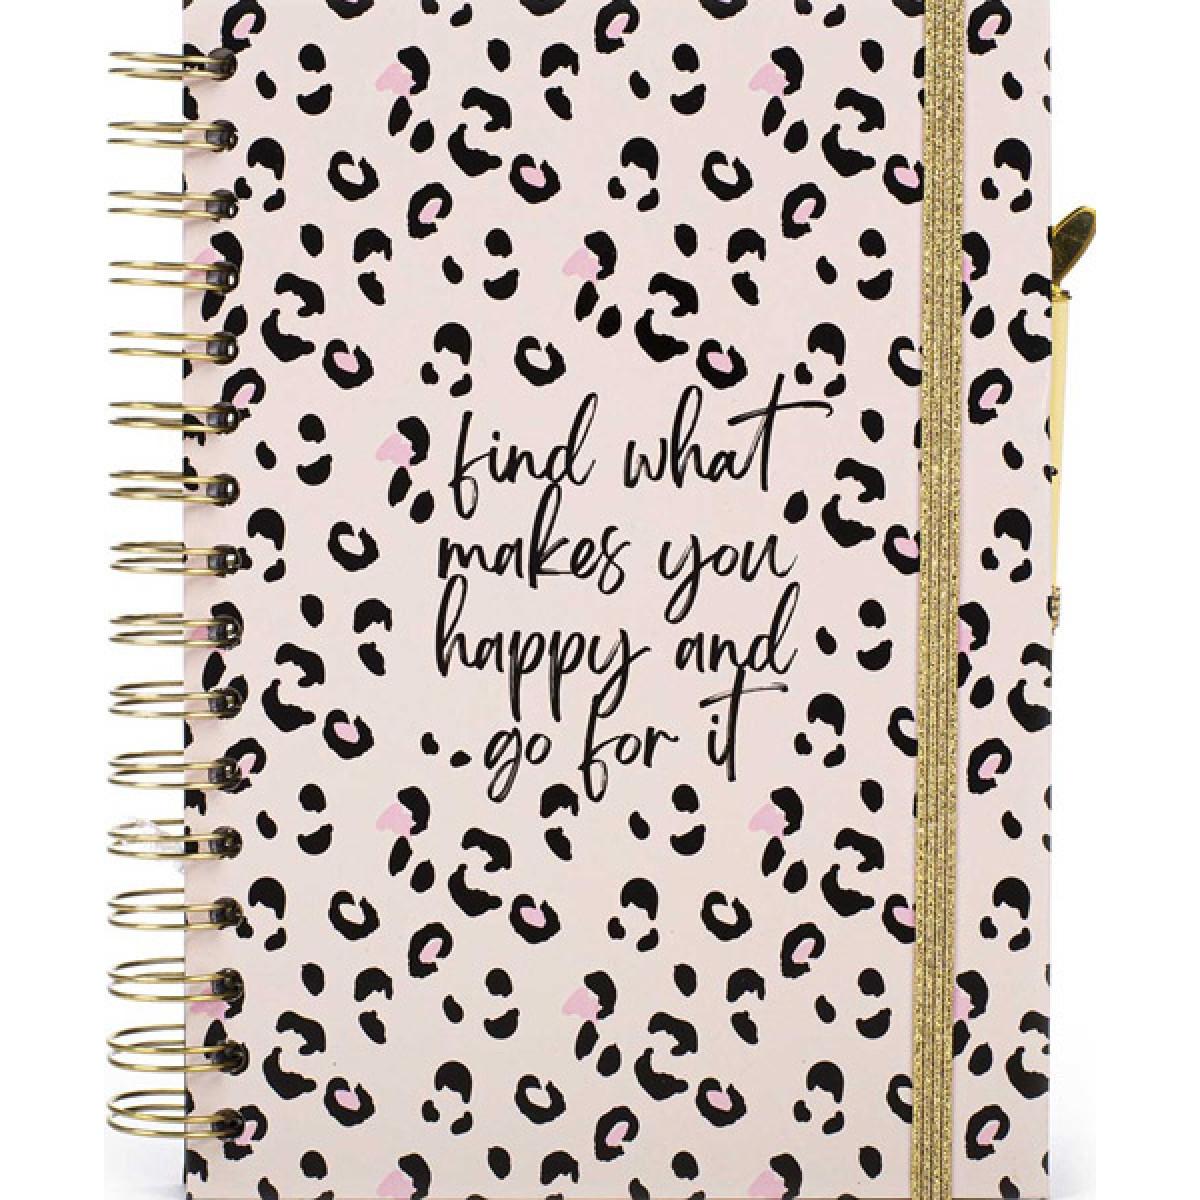 find what
makes you
happy and
go for it